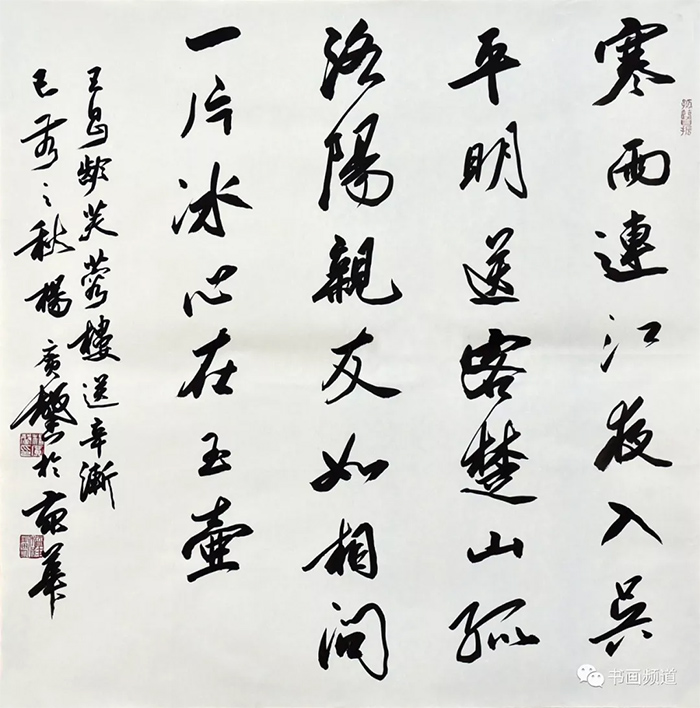 寒雨連江夜入吳
平明送客楚山孤
洛陽親友如相問
一片冰心在玉壺
王昌齡芙蓉樓送辛漸
己亥之秋楊廣馨於京華
书画频道